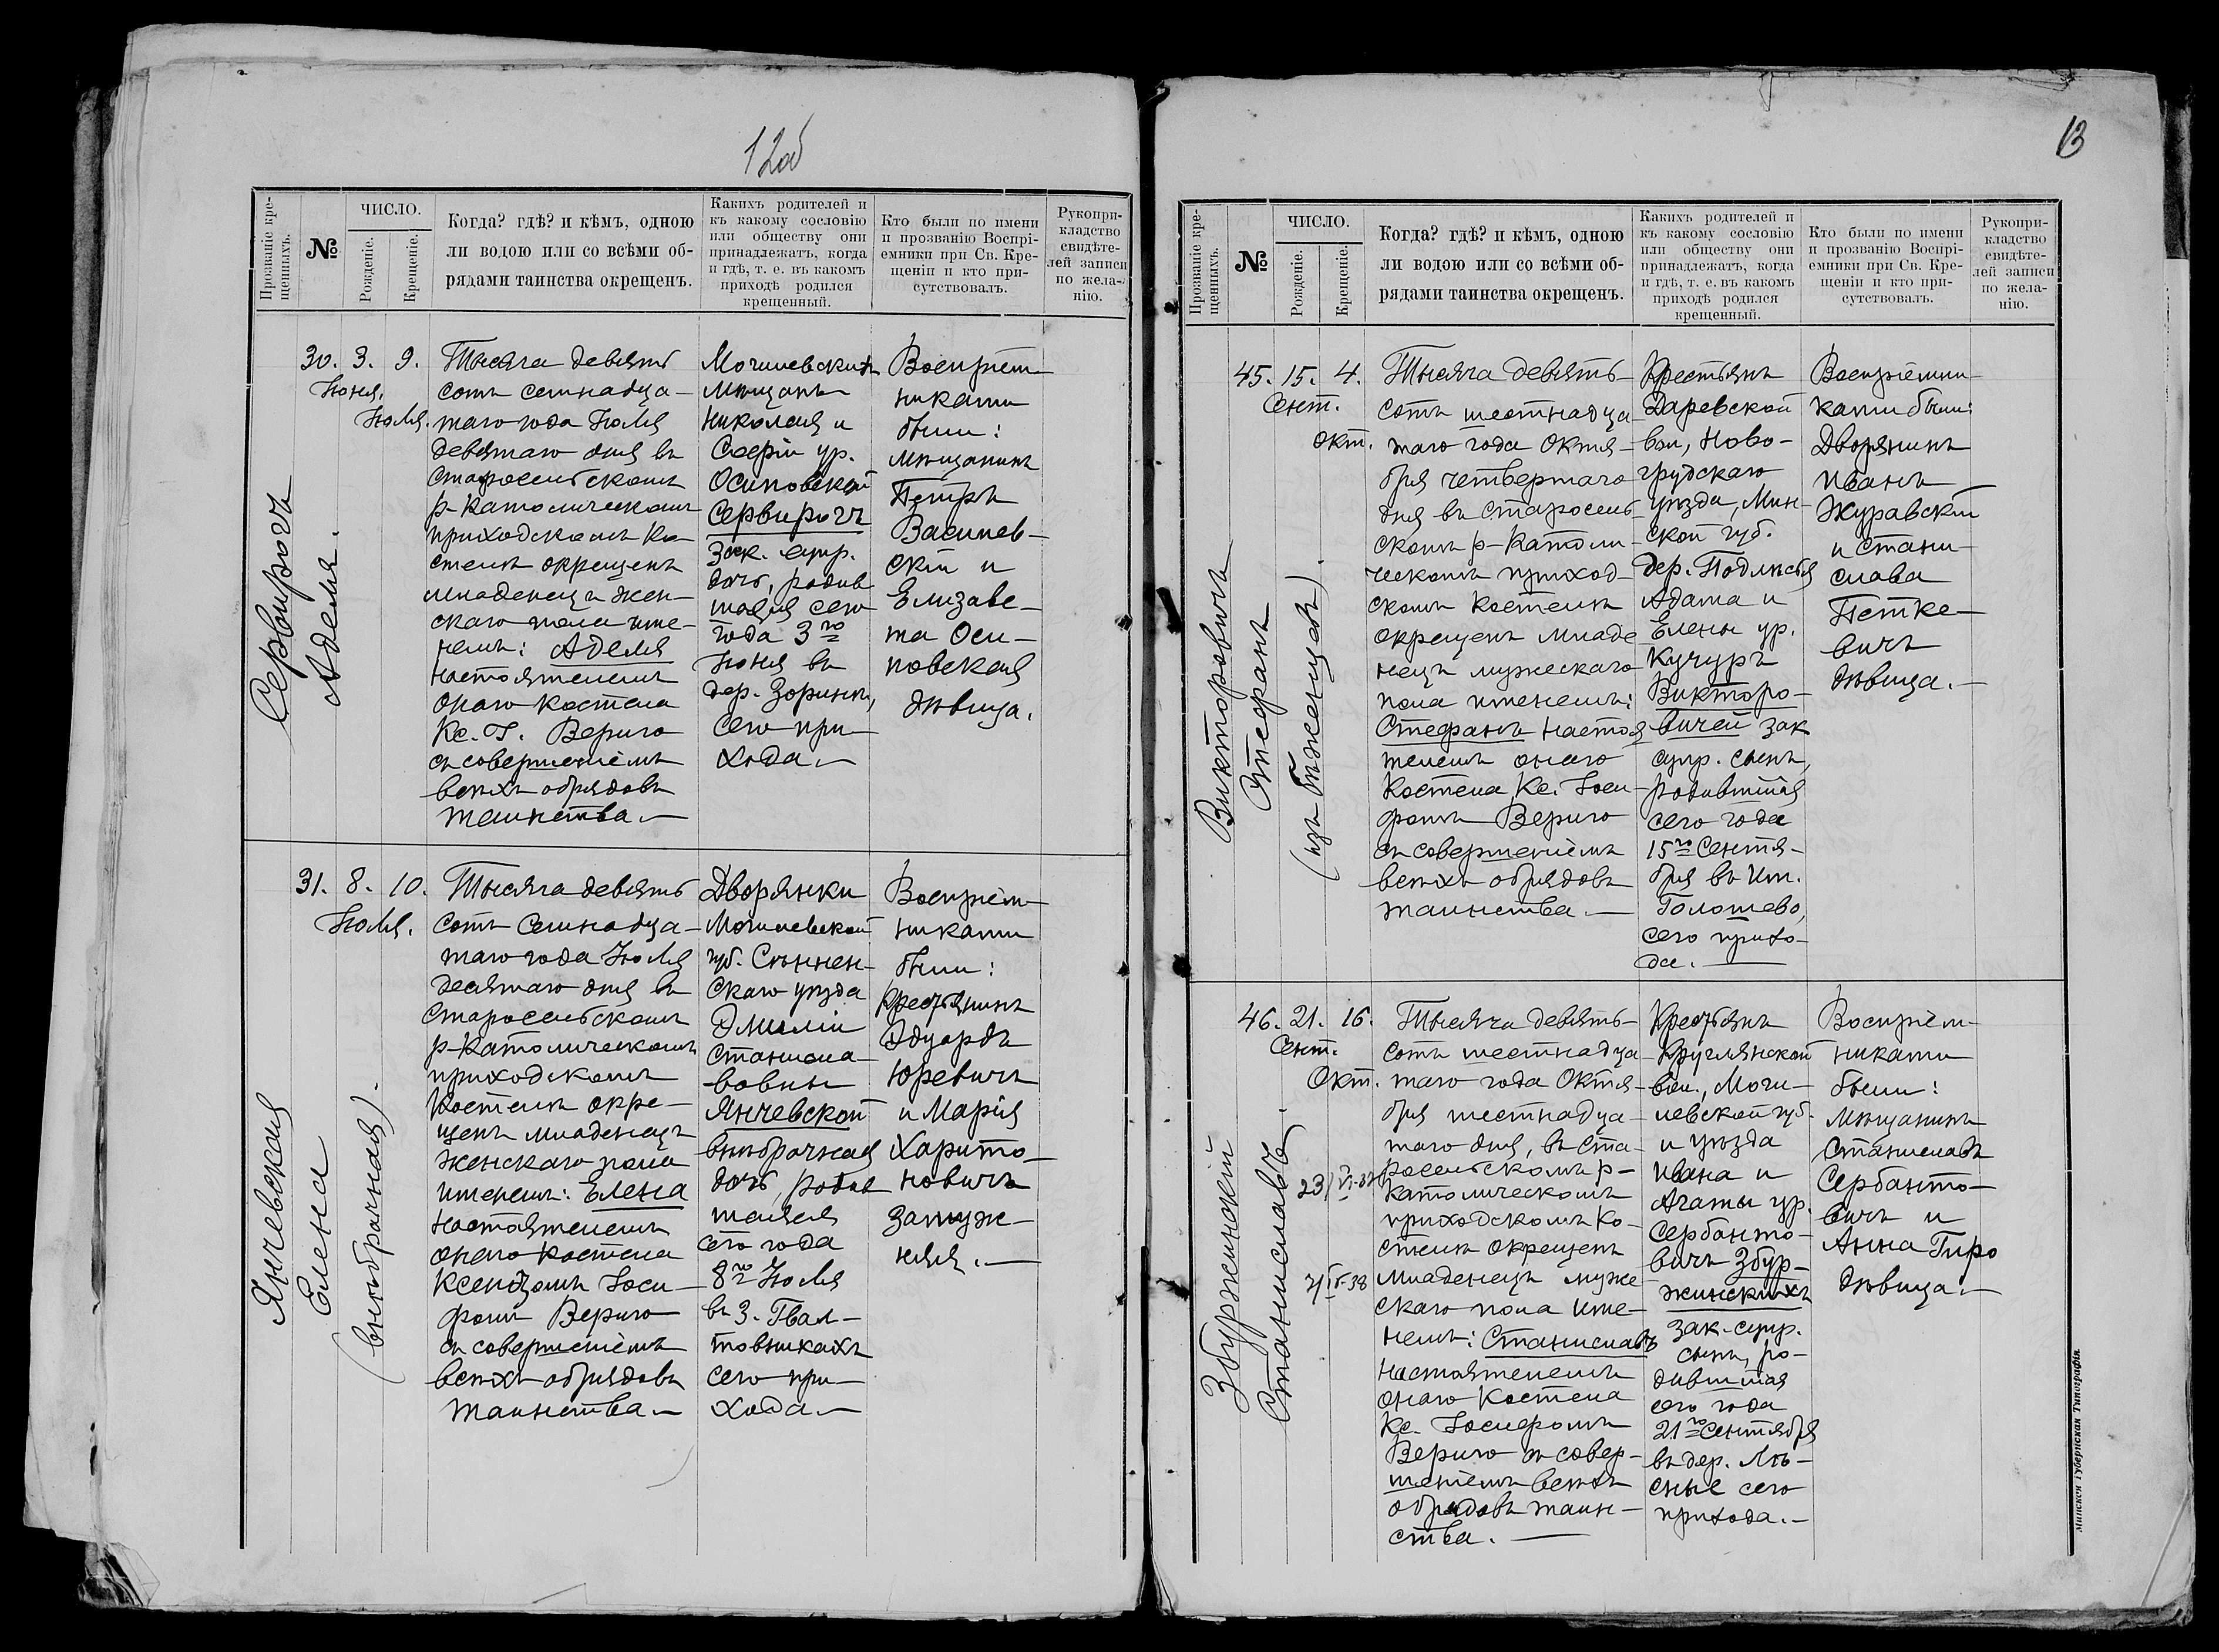 12об
Прозваніе кре-
щенныхъ.
№
ЧИСЛО.
Рожденіе.
Крещеніе.
Когда? гдѣ? и кѣмъ, одною
ли водою или со всѣми об-
рядами таинства окрещенъ.
Какихъ родителей и
къ какому сословію
или обществу они
принадлежатъ, когда
и гдѣ, т. е. въ какомъ
приходѣ родился
крещенный.
Кто были по имени
и прозванію Воспрі-
емники при Св. Кре-
щеніи и кто при-
сутствовалъ.
Рукопри-
кладство
свидѣте-
лей записи
по жела-
нію.
Сервирогъ
Аделя.
30. 3. 9.
Іюня.
Іюля.
Тысяча девять
сотъ семнадца-
таго года Іюля
девятаго дня въ
Старосельскомъ
р-католическомъ
приходскомъ ко-
стелѣ окрещенъ
младенецъ жен-
скаго пола име-
немъ: Аделя
настоятелемъ
онаго костела
Кс. І. Вериго
съ совершеніемъ
всѣхъ обрядовъ
таинства.—
Могилевскихъ
мѣщанъ
Николая и
Софіи ур.
Осиповской
Сервирогъ
зак. супр.
дочь, родив
шаяся сего
года 3го
Іюня въ
дер. Зоринки,
сего при-
хода.—
Воспріем-
никами
были:
мѣщанинъ
Петръ
Василев-
скій и
Елизаве-
та Оси-
повская
дѣвица.
Янчевская
Елена
(внѣбрачная).
31. 8. 10.
Іюля.
Тысяча девять
сотъ семнадца-
таго года Іюля
десятаго дня въ
Старосельскомъ
р-католическомъ
приходскомъ
костелѣ окре-
щенъ младенецъ
женскаго пола
именемъ: Елена
настоятелемъ
онаго костела
Ксендзомъ Іоси-
фомъ Вериго
съ совершеніемъ
всѣхъ обрядовъ
таинства.—
Дворянки
Могилевской
губ. Сѣннен-
скаго уѣзда
Эмиліи
Станисла-
вовны
Янчевской
внѣбрачная
дочь, родив
шаяся
сего года
8го Іюля
въ З. Гвал-
товникахъ
сего при-
хода.—
Воспріем-
никами
были:
Крестьянинъ
Эдуардъ
Юревичъ
и Марія
Харито-
новичъ
замуж-
няя.—
13
Прозваніе кре-
щенныхъ.
№
ЧИСЛО.
Рожденіе.
Крещеніе.
Когда? гдѣ? и кѣмъ, одною
ли водою или со всѣми об-
рядами таинства окрещенъ.
Какихъ родителей и
къ какому сословію
или обществу они
принадлежатъ, когда
и гдѣ, т. е. въ какомъ
приходѣ родился
крещенный.
Кто были по имени
и прозванію Воспрі-
емники при Св. Кре-
щеніи и кто при-
сутствовалъ.
Рукопри-
кладство
свидѣте-
лей записи
по жела-
нію.
Викторовичъ
Стефанъ
(изъ бѣженцевъ).
45. 15. 4.
Сент.
Окт.
Тысяча девять-
сотъ шестнадца
таго года Октя-
бря четвертаго
дня въ Старосель-
скомъ р-католи-
ческомъ приход-
скомъ костелѣ
окрещенъ младе
нецъ мужескаго
пола именемъ:
Стефанъ настоя
телемъ онаго
костела, Кс. Іоси-
фомъ Вериго
съ совершеніемъ
всѣхъ обрядовъ
таинства.—
Крестьянъ
Даревской
вол., Ново-
грудскаго
уѣзда, Мин-
ской губ.
дер. Подлѣсья
Адама и
Елены ур.
Кучуръ
Викторо-
вичей зак
супр. сынъ,
родившійся
сего года
15го Сентя-
бря въ Им.
Голошево,
сего прихо-
да.—
Воспріемни-
ками были:
Дворянинъ
Иванъ
Журавскій
и Стани-
слава
Петке-
вичъ
дѣвица.—
Збуржинскій
Станиславъ.
46. 21. 16.
Сент.
Окт.
Тысяча девять-
сотъ шестнадца-
таго года Октя-
бря шестнадца-
таго дня, въ Ста-
росельскомъ р-
католическомъ
приходскомъ ко-
стелѣ окрещенъ
младенецъ муже-
скаго пола име-
немъ: Станиславъ
настоятелемъ
онаго костела
Кс. Іосифомъ
Вериго съ совер-
шеніемъ всѣхъ
обрядовъ таин-
ства.—
Крестьянъ
Круглянской
вол., Моги-
левской губ.
и уѣзда
Ивана и
Агаты ур.
Сербанто-
вичъ Збур-
жинскихъ
зак. супр.
сынъ, ро-
дившійся
сего года
21го Сентября
въ дер. Лѣ-
сные сего
прихода.—
Воспріем-
никами
были:
Мѣщанинъ
Станиславъ
Сербанто-
вичъ и
Анна Гиро
дѣвица.—
Минская Губернская Типографія.